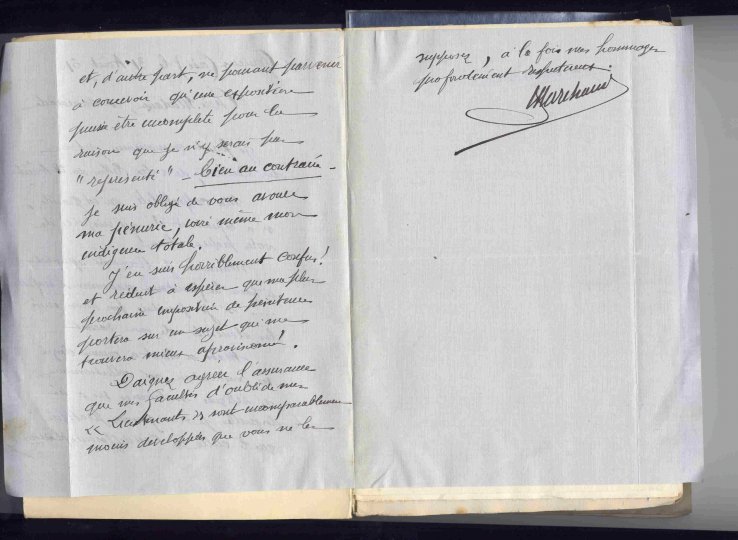 et, d'autre part, ne pouvant parvenir
à concevoir qu'une exposition
puisse être incomplète pour la
raison que je n'y serais pas
"représenté" bien au contraire -
je suis obligé de vous avouer
ma pénurie, voire même mon
indigence totale.
J'en suis horriblement confus!
et réduit à espérer que ma plus
prochaine imposition de pénitence
portera sur un sujet qui me
trouvera mieux aprovisionné!
Daignez agréer l'assurance
que mes facultés d'oubli de mes
« Lieutenants » sont incomparablement
moins développées que vous ne le
supposez, à la fois mes hommages
profondément respectueux.
Marchand